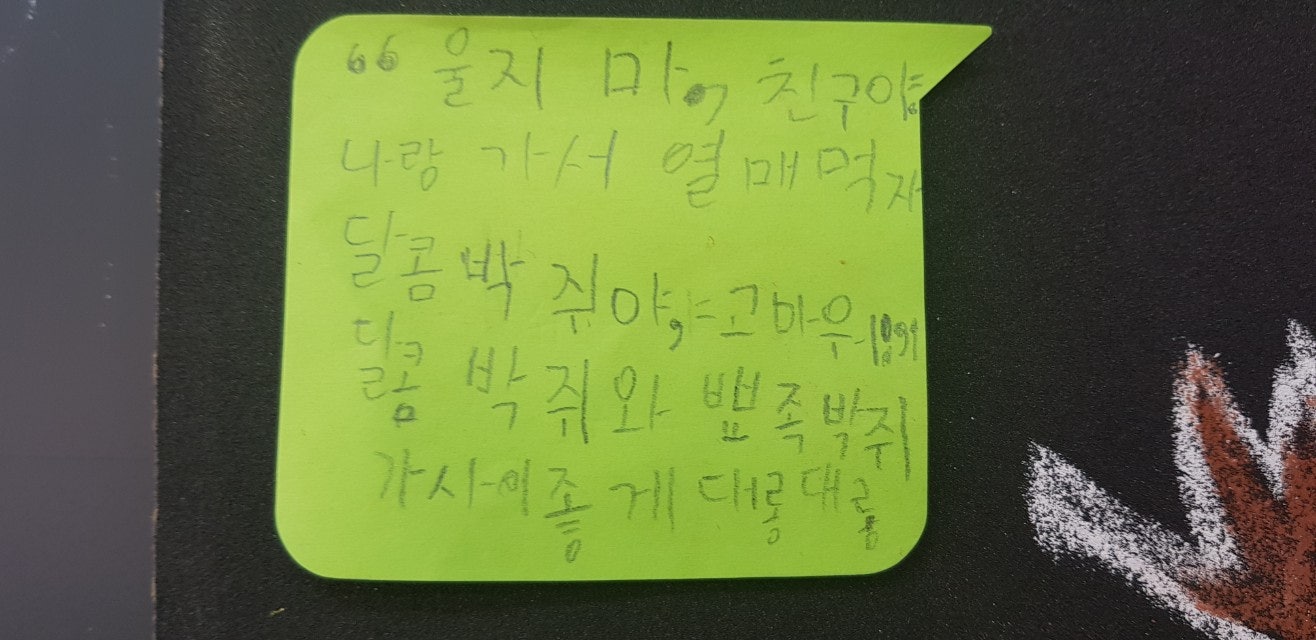 “울지 마, 친구야.
나랑 가서 열매먹자
달콤박 쥐야, 고마우
달콤 박쥐와 뾰족박쥐
가사이좋게 대롱대롱